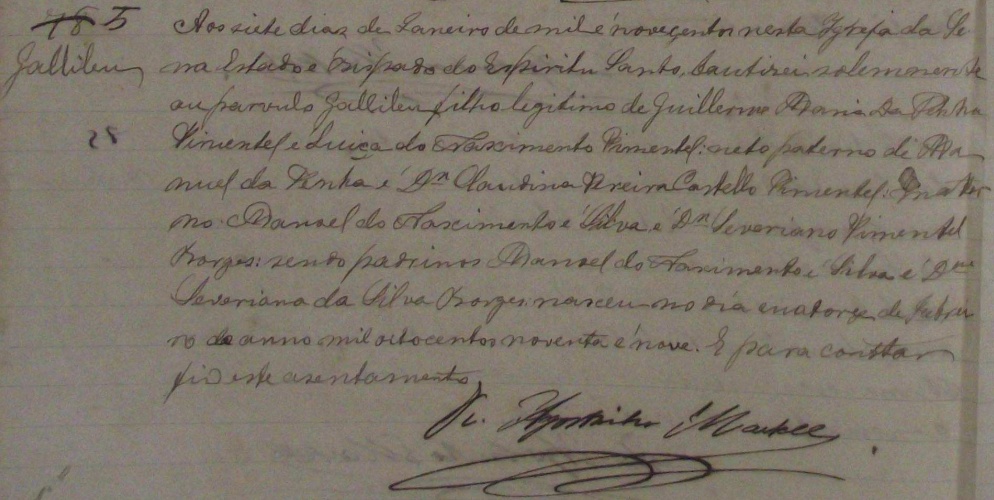 5
Gallileu
Aos siete dias de Janeiro de mil é noveçentos nesta Igreja da Se
rra Estado é Bispado do Espiritu Santo, bautizei solemnemente
au parvulo Gallileu filho legitimo de Guillerme Maria Da Penha
Pimentel e Luiça do Nascimento Pimentel: neto paterno de Ma
nuel da Penha é Dna Claudina Pereira Castello Pimentel: é mater
no Manoel do Nascimento é Silva é Dna Severiano Pimentel
Borges: sendo padrinos Manoel do Nascimento é Silva é Dna
Severiana da Silva Borges nasceu no dia cuatorze de Febrei
ro do anno mil oitocentos noventa é nove. E para constar
fiz este asentamento